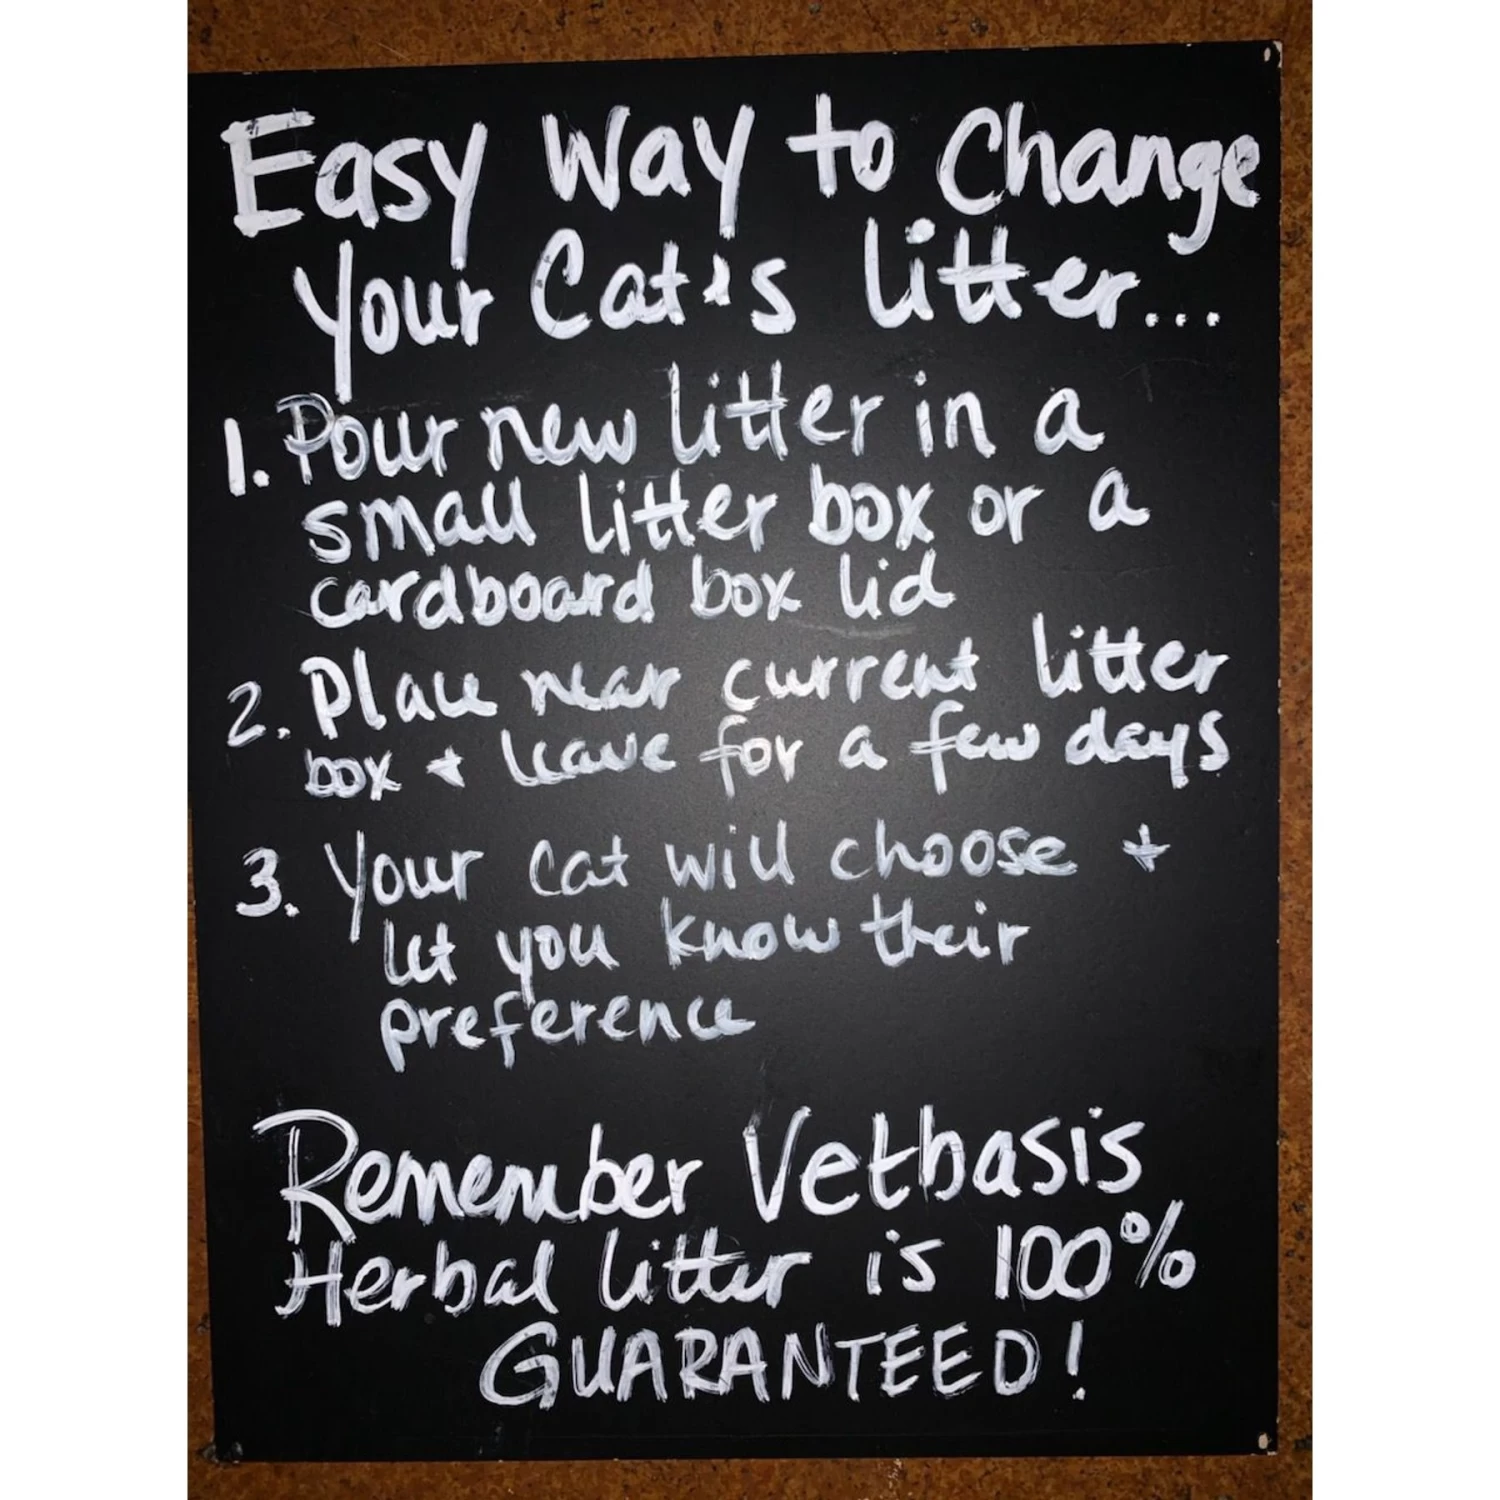 Easy Way to Change
Your Cat's Litter...
1. Pour new litter in a
small litter box or a
cardboard box lid
2. Place near current litter
box + leave for a few days
3. Your cat will choose +
let you know their
preference
Remember Vetbasis
Herbal litter is 100%
GUARANTEED!